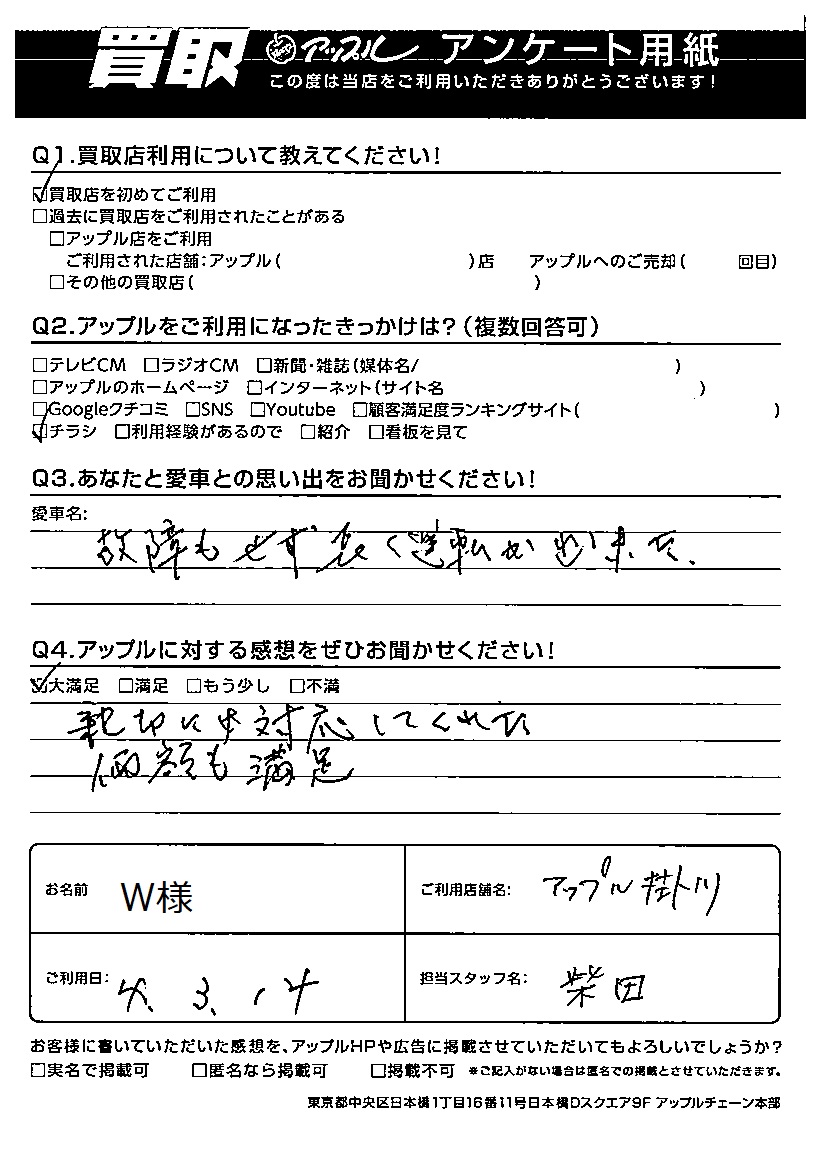 買取 アップル アンケート用紙
この度は当店をご利用いただきありがとうございます!
Q1.買取店利用について教えてください!
☑買取店を初めてご利用
□過去に買取店をご利用されたことがある
□アップル店をご利用
ご利用された店舗:アップル( )店 アップルへのご売却( 回目)
□その他の買取店( )
Q2.アップルをご利用になったきっかけは?(複数回答可)
□テレビCM □ラジオCM □新聞・雑誌(媒体名/ )
□アップルのホームページ □インターネット(サイト名 )
□Googleクチコミ □SNS □Youtube □顧客満足度ランキングサイト( )
☑チラシ □利用経験があるので □紹介 □看板を見て
Q3.あなたと愛車との思い出をお聞かせください!
愛車名:
故障もせず良く運転が出来た.
Q4.アップルに対する感想をぜひお聞かせください!
☑大満足 □満足 □もう少し □不満
親切に対応してくれた
価額も満足
お名前 W様 ご利用店舗名: アップル掛川
ご利用日: 4. 3. 14 担当スタッフ名: 柴田
お客様に書いていただいた感想を、アップルHPや広告に掲載させていただいてもよろしいでしょうか?
□実名で掲載可 □匿名なら掲載可 □掲載不可 ※ご記入がない場合は匿名での掲載とさせていただきます。
東京都中央区日本橋1丁目16番11号日本橋Dスクエア9F アップルチェーン本部